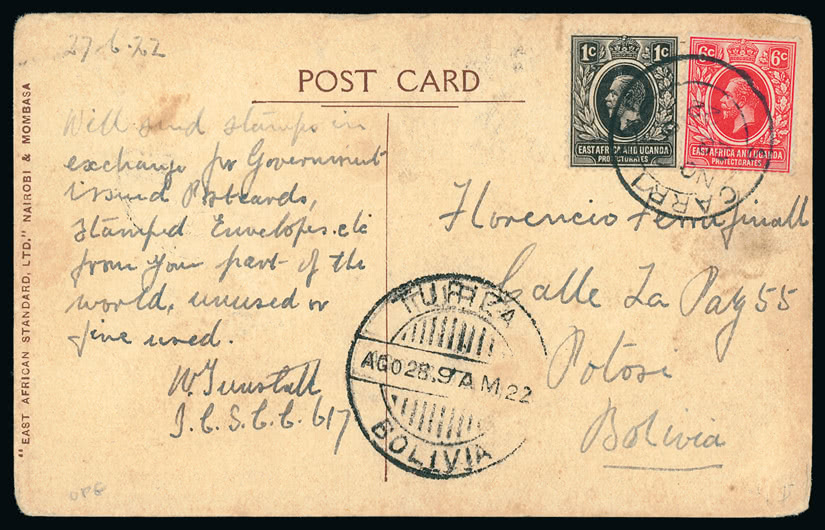 27.6.22
POST CARD
"EAST AFRICAN STANDARD, LTD." NAIROBI & MOMBASA
Will send stamps in
exchange for Government
issued Postcards,
Stamped Envelopes. etc
from your part of the
world, unused or
fine used.
W. Tunstall
I.C.S.C.C. 617
1c 1c
EAST AFRICA AND UGANDA
PROTECTORATES
6c 6c
EAST AFRICA AND UGANDA
PROTECTORATES
Florencio
Calle La Paz 55
Potosi
Bolivia
AGO 28. 9 AM 22
BOLIVIA